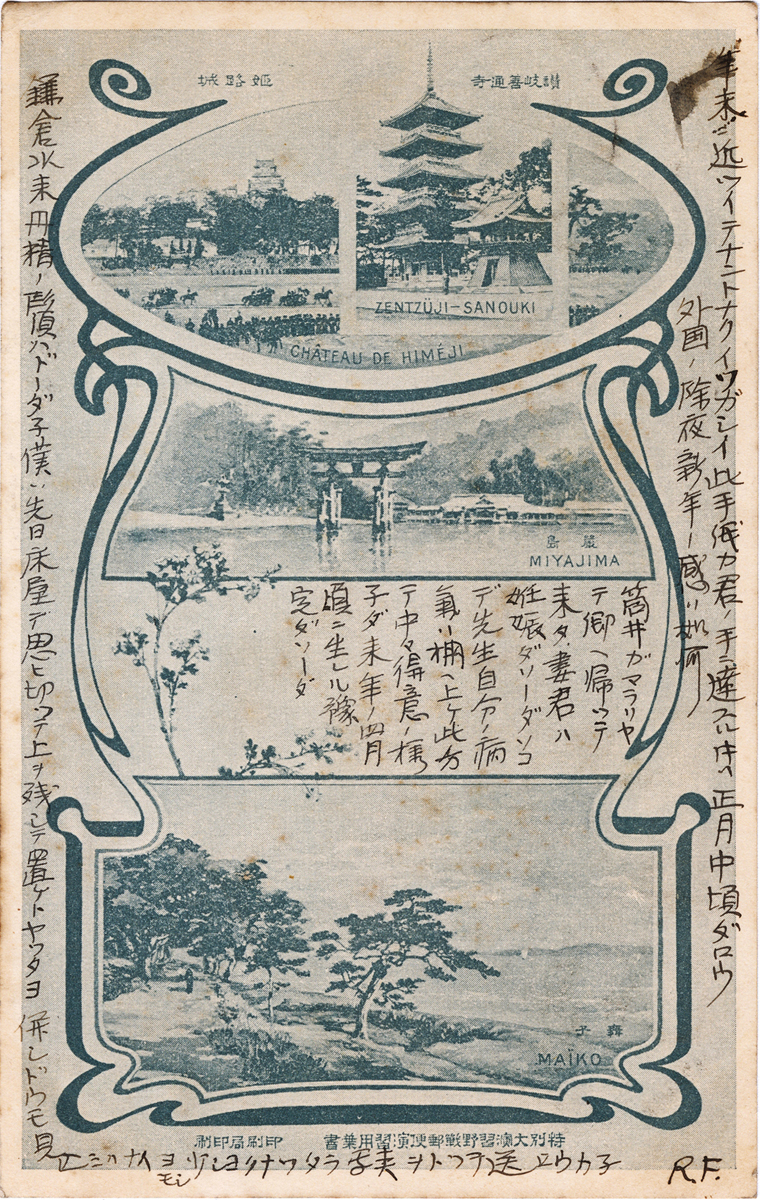 讃岐善通寺
姫路城
ZENTZŪJI-SANOUKI
CHÂTEAU DE HIMÉJI
嚴島
MIYAJIMA
舞子
MAÏKO
特別大演習野戰郵便演習用葉書
印刷局印刷
年末ニ近ツイテナントナクイソガシイ此手紙カ君ノ手ニ達スル時ハ正月中頃ダロウ
外国ノ除夜新年ノ感ハ如何
筒井ガマラリヤ
テ郷ヘ帰ツテ
来タ妻君ハ
妊娠ダソーダソコ
デ先生自分ノ病
氣ハ棚ヘ上ケ此分
テ中々得意ノ様
子ダ来年ノ四月
頃ニ生レル豫
定ダソーダ
鎌倉以来丹精ノ髭須ハドーダ子僕ハ先日床屋デ思ヒ切ツテ上ヲ残シテ置ケトヤツタヨ併シドウモ見
ヨ少シヨクナツタラ写真ヲトツテ送ラウカ子
R.F.